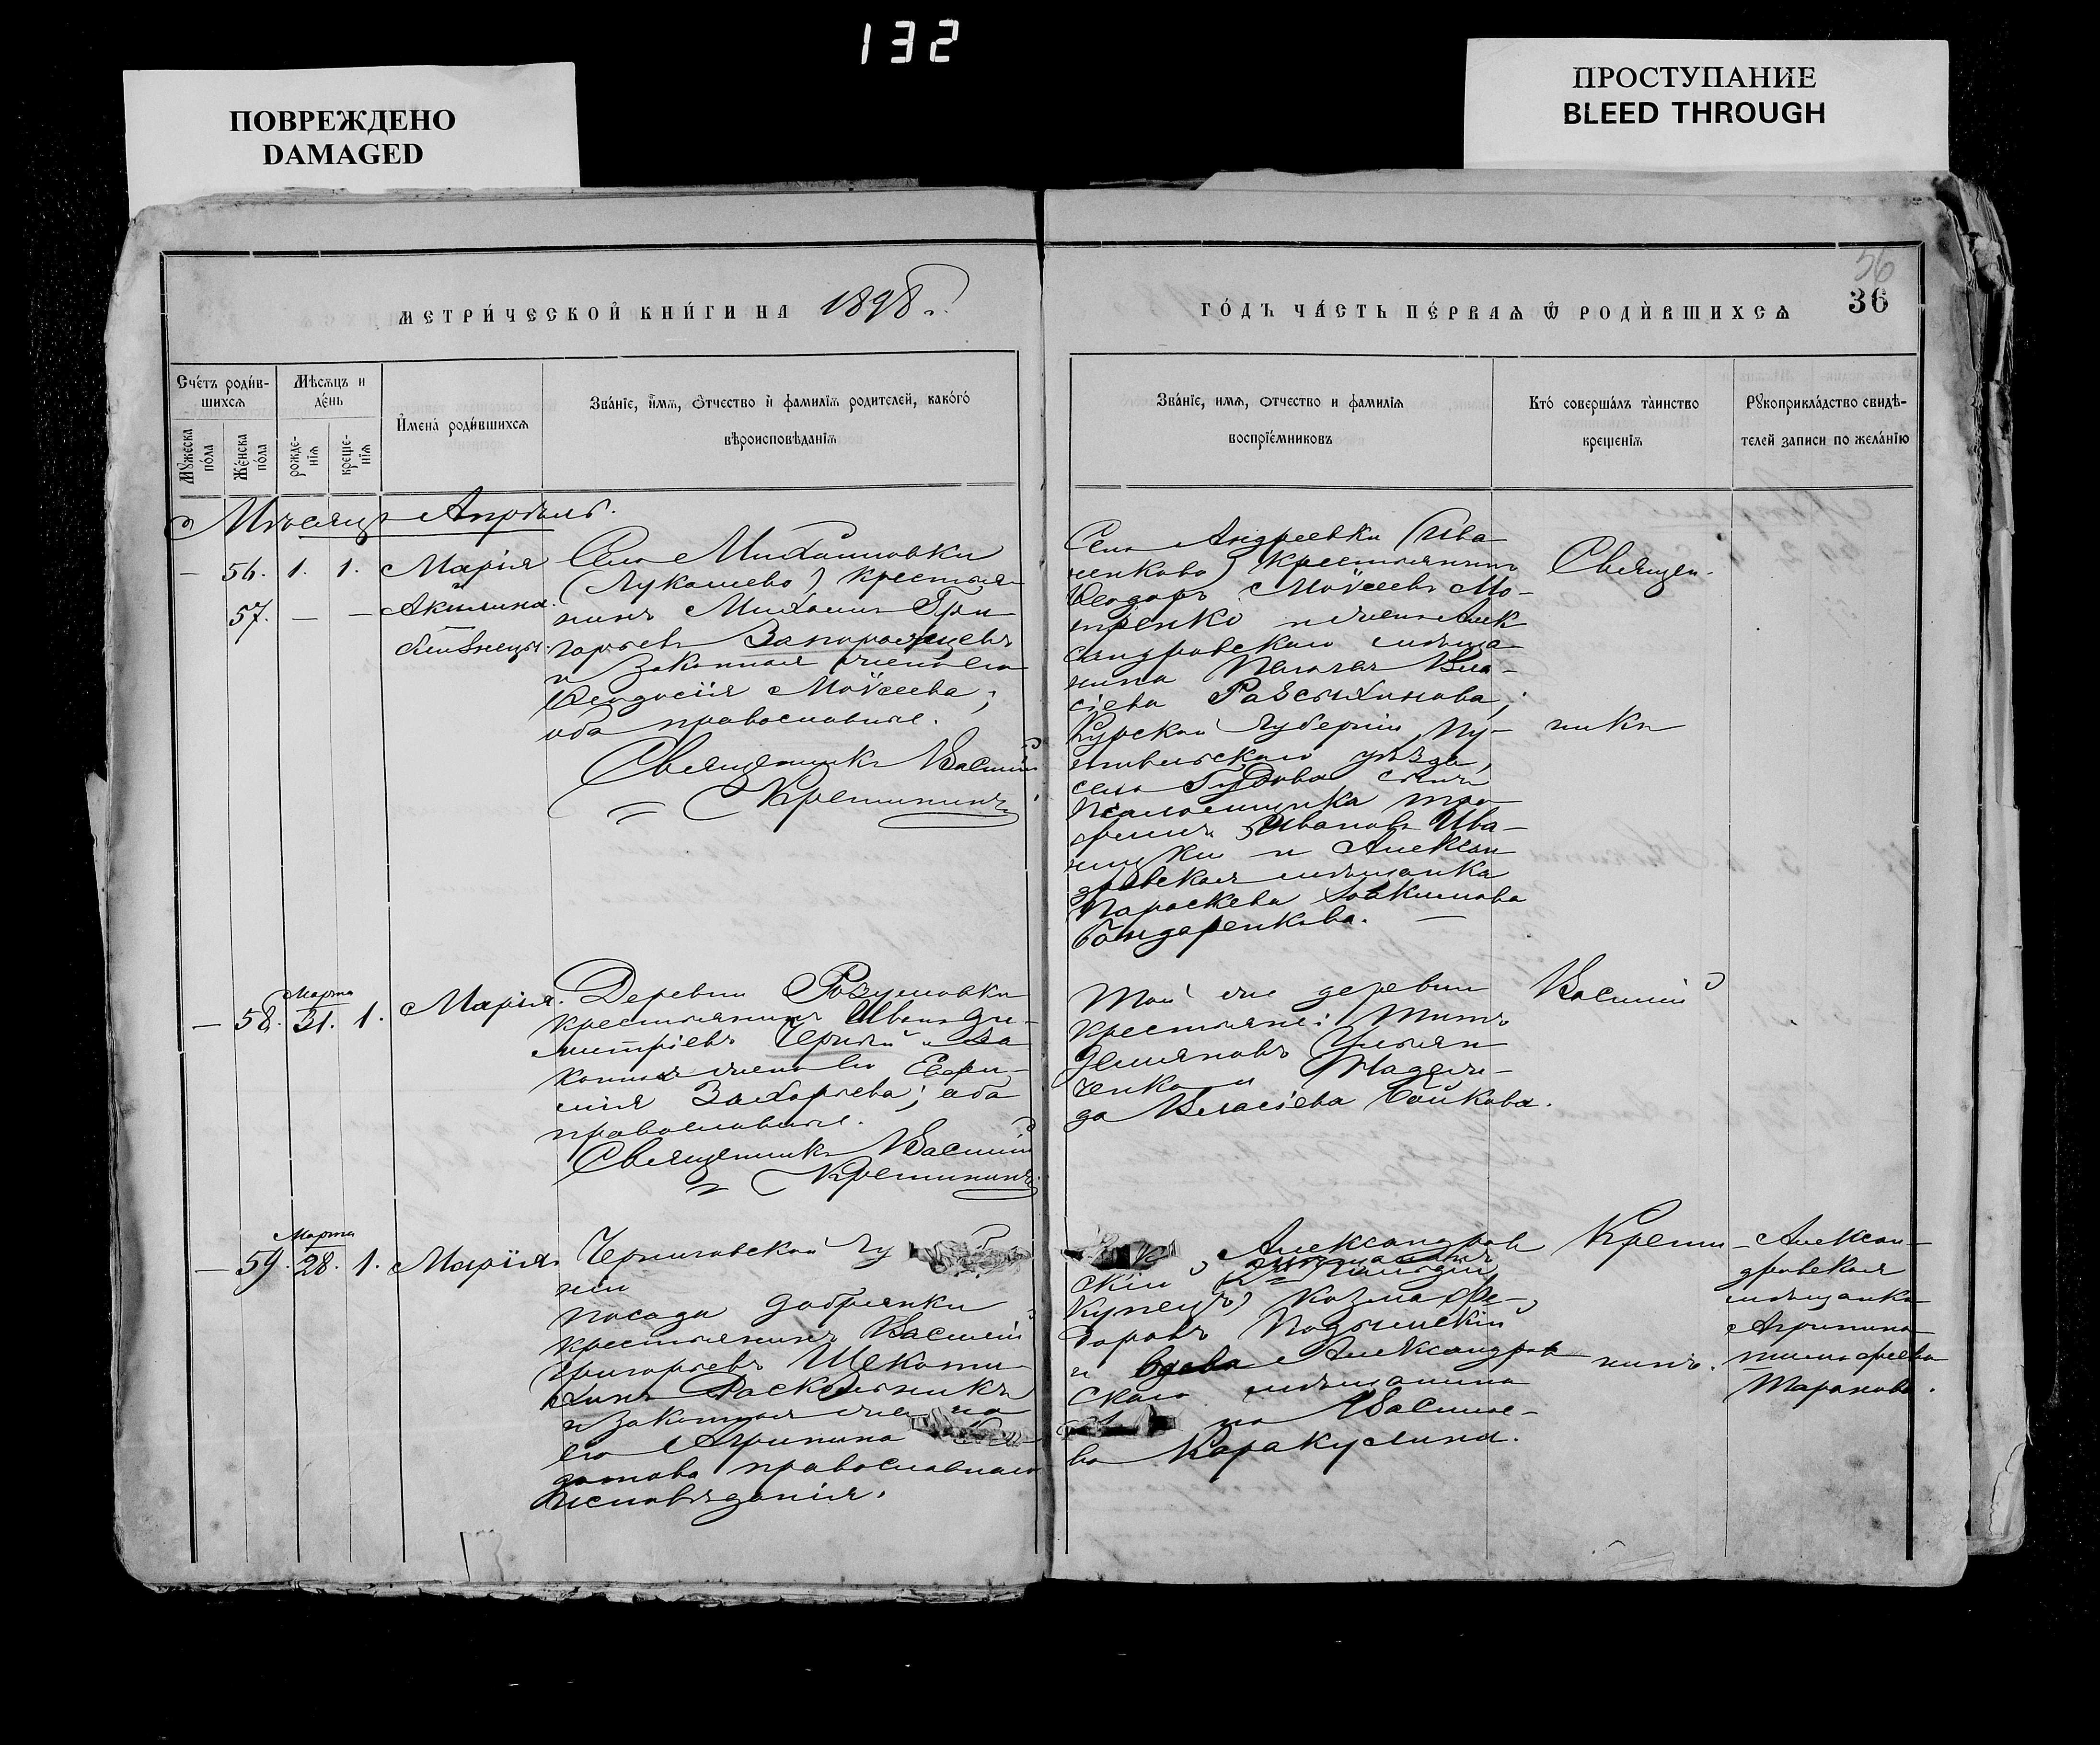 132
ПОВРЕЖДЕНО
DAMAGED
ПРОСТУПАНИЕ
BLEED THROUGH
56
36
МЕТРИ́ЧЕСКОЙ КНИ́ГИ НА 1898 г.
ГО́ДЪ ЧА́СТЬ ПЕ́РВАѦ Ѿ РОДИ́ВШИХСѦ
Сче́тъ роди́в-
шихсѧ
Мꙋжеска
по́ла
Же́нска
по́ла
Мѣсѧцъ и
де́нь
рожде-
нїѧ
креще-
нїѧ
И҆мена̀ роди́вшихсѧ
Зва́нїе, и҆́мѧ, ѻ҆́тчество и҆ фамилїѧ родителей, како́гѡ
вѣроисповѣ́данїѧ
Зва́нїе, имѧ, отчество и фамилїѧ
воспрїе́мниковъ
Кто́ соверша́лъ та̀инство
креще́нїѧ
Рꙋкоприкла́дство свидѣ-
телей записи по жела́нїю
Мѣсяцъ Апрѣль.
— 56. 1. 1. Марія
57. — — Акилина.
близнецы.
Села Михайловки
(Лукашево) крестья-
нинъ Михаилъ Гри-
горьевъ Запорожцевъ
и законная жена его
Ѳеодосія Моѵсеева;
оба православные.
Священникъ Василій
Крещининъ
Села Андреевки (Ива
ненково) крестьянинъ
Ѳеодоръ Моѵсеевъ Мо-
тренко и жена Алек
сандровскаго мѣща-
нина Пелагея Вла-
сіева
Курской губерніи Пу-
тивльскаго уѣзда,
села сынъ
псаломщика Тро-
фимъ Ивановъ Ива-
ницкій и Алексан
дровская мѣщанка
Параскева Іоакимова
Бондаренкова. —
Священ-
никъ
Марта
— 58. 31. 1. Марія.
Деревни Розумовки
крестьянинъ Иванъ Ди-
митріевъ Черный и за
конная жена его Евфи-
мія Захарьева; оба
православные.
Священникъ Василій
Крещининъ
Той же деревни
крестьяне: Титъ
Демяновъ Ульян
ченко и Надеж-
да Власіева Бойкова.
Василій
Марта
— 59. 28. 1. Марія
Черниговской Гу
ніи
посада Добрянки
крестьянинъ Василій
Григорьевъ Щекоти-
хинъ Раскольникъ
и законная жена
его Агрипина
православнаго
исповѣданія.
Александров
скій
купецъ) Козма Ѳе-
доровъ
и вдова Александров
скаго мѣщанина
на Василье-
ва Каракулина.
Крещи-
нинъ.
Алексан-
дровская
мѣщанка
Агрипина
Тимофеева
Таранова.